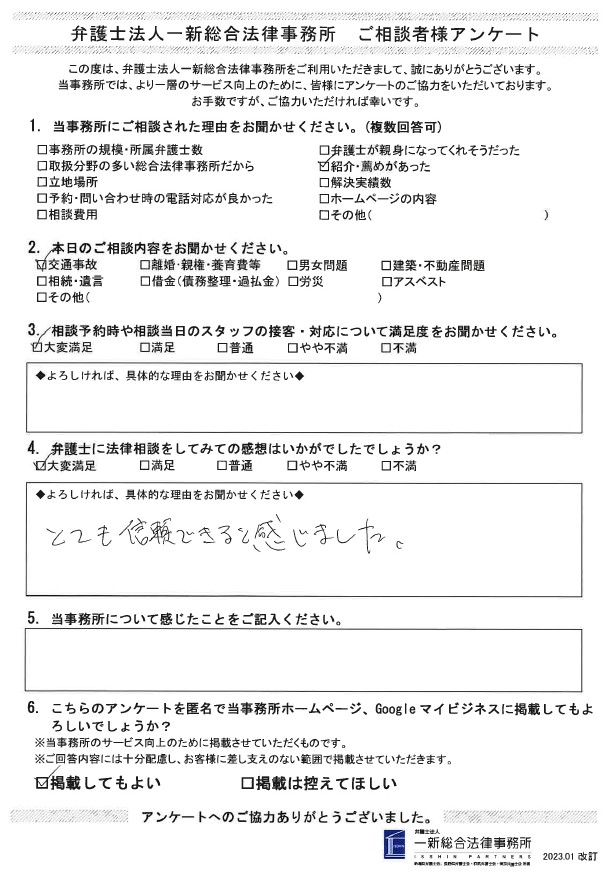 弁護士法人一新総合法律事務所　ご相談者様アンケート
この度は、弁護士法人一新総合法律事務所をご利用いただきまして、誠にありがとうございます。
当事務所では、より一層のサービス向上のために、皆様にアンケートのご協力をいただいております。
お手数ですが、ご協力いただければ幸いです。
1．当事務所にご相談された理由をお聞かせください。（複数回答可）
□事務所の規模・所属弁護士数　□弁護士が親身になってくれそうだった
□取扱分野の多い総合法律事務所だから　☑紹介・薦めがあった
□立地場所　□解決実績数
□予約・問い合わせ時の電話対応が良かった　□ホームページの内容
□相談費用　□その他（　）
2．本日のご相談内容をお聞かせください。
☑交通事故　□離婚・親権・養育費等　□男女問題　□建築・不動産問題
□相続・遺言　□借金（債務整理・過払金）　□労災　□アスベスト
□その他（　）
3．相談予約時や相談当日のスタッフの接客・対応について満足度をお聞かせください。
☑大変満足　□満足　□普通　□やや不満　□不満
◆よろしければ、具体的な理由をお聞かせください◆
4．弁護士に法律相談をしてみての感想はいかがでしたでしょうか？
☑大変満足　□満足　□普通　□やや不満　□不満
◆よろしければ、具体的な理由をお聞かせください◆
とても信頼できると感じました。
5．当事務所について感じたことをご記入ください。
6．こちらのアンケートを匿名で当事務所ホームページ、Googleマイビジネスに掲載してもよ
ろしいでしょうか？
※当事務所のサービス向上のために掲載させていただくものです。
※ご回答内容には十分配慮し、お客様に差し支えのない範囲で掲載させていただきます。
☑掲載してもよい　□掲載は控えてほしい
アンケートへのご協力ありがとうございました。
弁護士法人
一新総合法律事務所
ISSHIN PARTNERS
2023.01 改訂